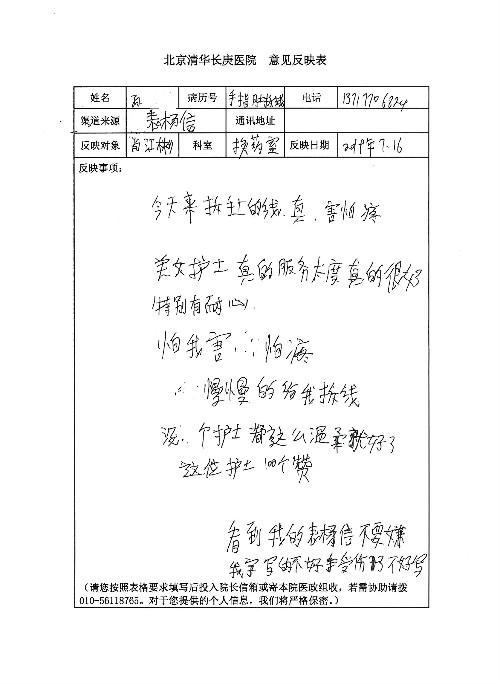 北京清华长庚医院 意见反映表
姓名 病历号 手指 拆线 电话
渠道来源 表杨信 通讯地址
反映对象 肖江 科室 换药室 反映日期 2019年7.16
反映事项：
今天来拆手上的线.真.害怕疼
美女护士真的服务太度真的很好
特别有耐心.
怕我害 怕疼
慢慢的给我拆线
个护士都这么温柔就好了
这位护士100个赞
看到我的表杨信不要嫌
我字写的不好手受伤了不好写
（请您按照表格要求填写后投入院长信箱或寄本院医政组收，若需协助请拨
010-56118765。对于您提供的个人信息，我们将严格保密。）